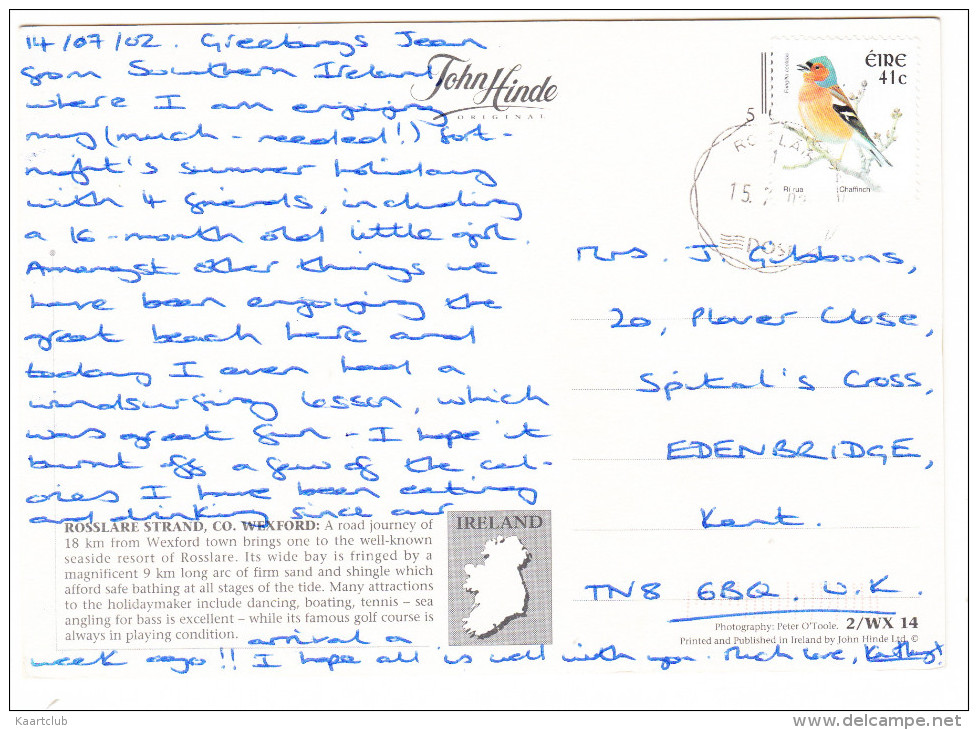 14/07/02. Greetings Jean
from Southern Ireland,
where I am enjoying
my (much-needed!) fort-
night's summer holiday
with 4 friends, including
a 16-month old little girl.
Amongst other things we
have been enjoying the
great beach here and
today I even had a
windsurfing lesson, which
was great fun - I hope it
burnt off a few of the cal-
ories I have been eating
and drinking since our
arrival a
week ago!! I hope all is well with you. Much love, Kathy.
John Hinde
ORIGINAL
ÉIRE
41c
Rí rua
Chaffinch
15.
Mrs. J. Gibbons,
20, Plover Close,
Spital's Cross,
EDENBRIDGE,
Kent.
TN8 6BQ. U.K.
ROSSLARE STRAND, CO. WEXFORD: A road journey of
18 km from Wexford town brings one to the well-known
seaside resort of Rosslare. Its wide bay is fringed by a
magnificent 9 km long arc of firm sand and shingle which
afford safe bathing at all stages of the tide. Many attractions
to the holidaymaker include dancing, boating, tennis – sea
angling for bass is excellent – while its famous golf course is
always in playing condition.
IRELAND
Photography: Peter O'Toole. 2/WX 14
Printed and Published in Ireland by John Hinde Ltd. ©
Kaartclub
www.delcampe.net